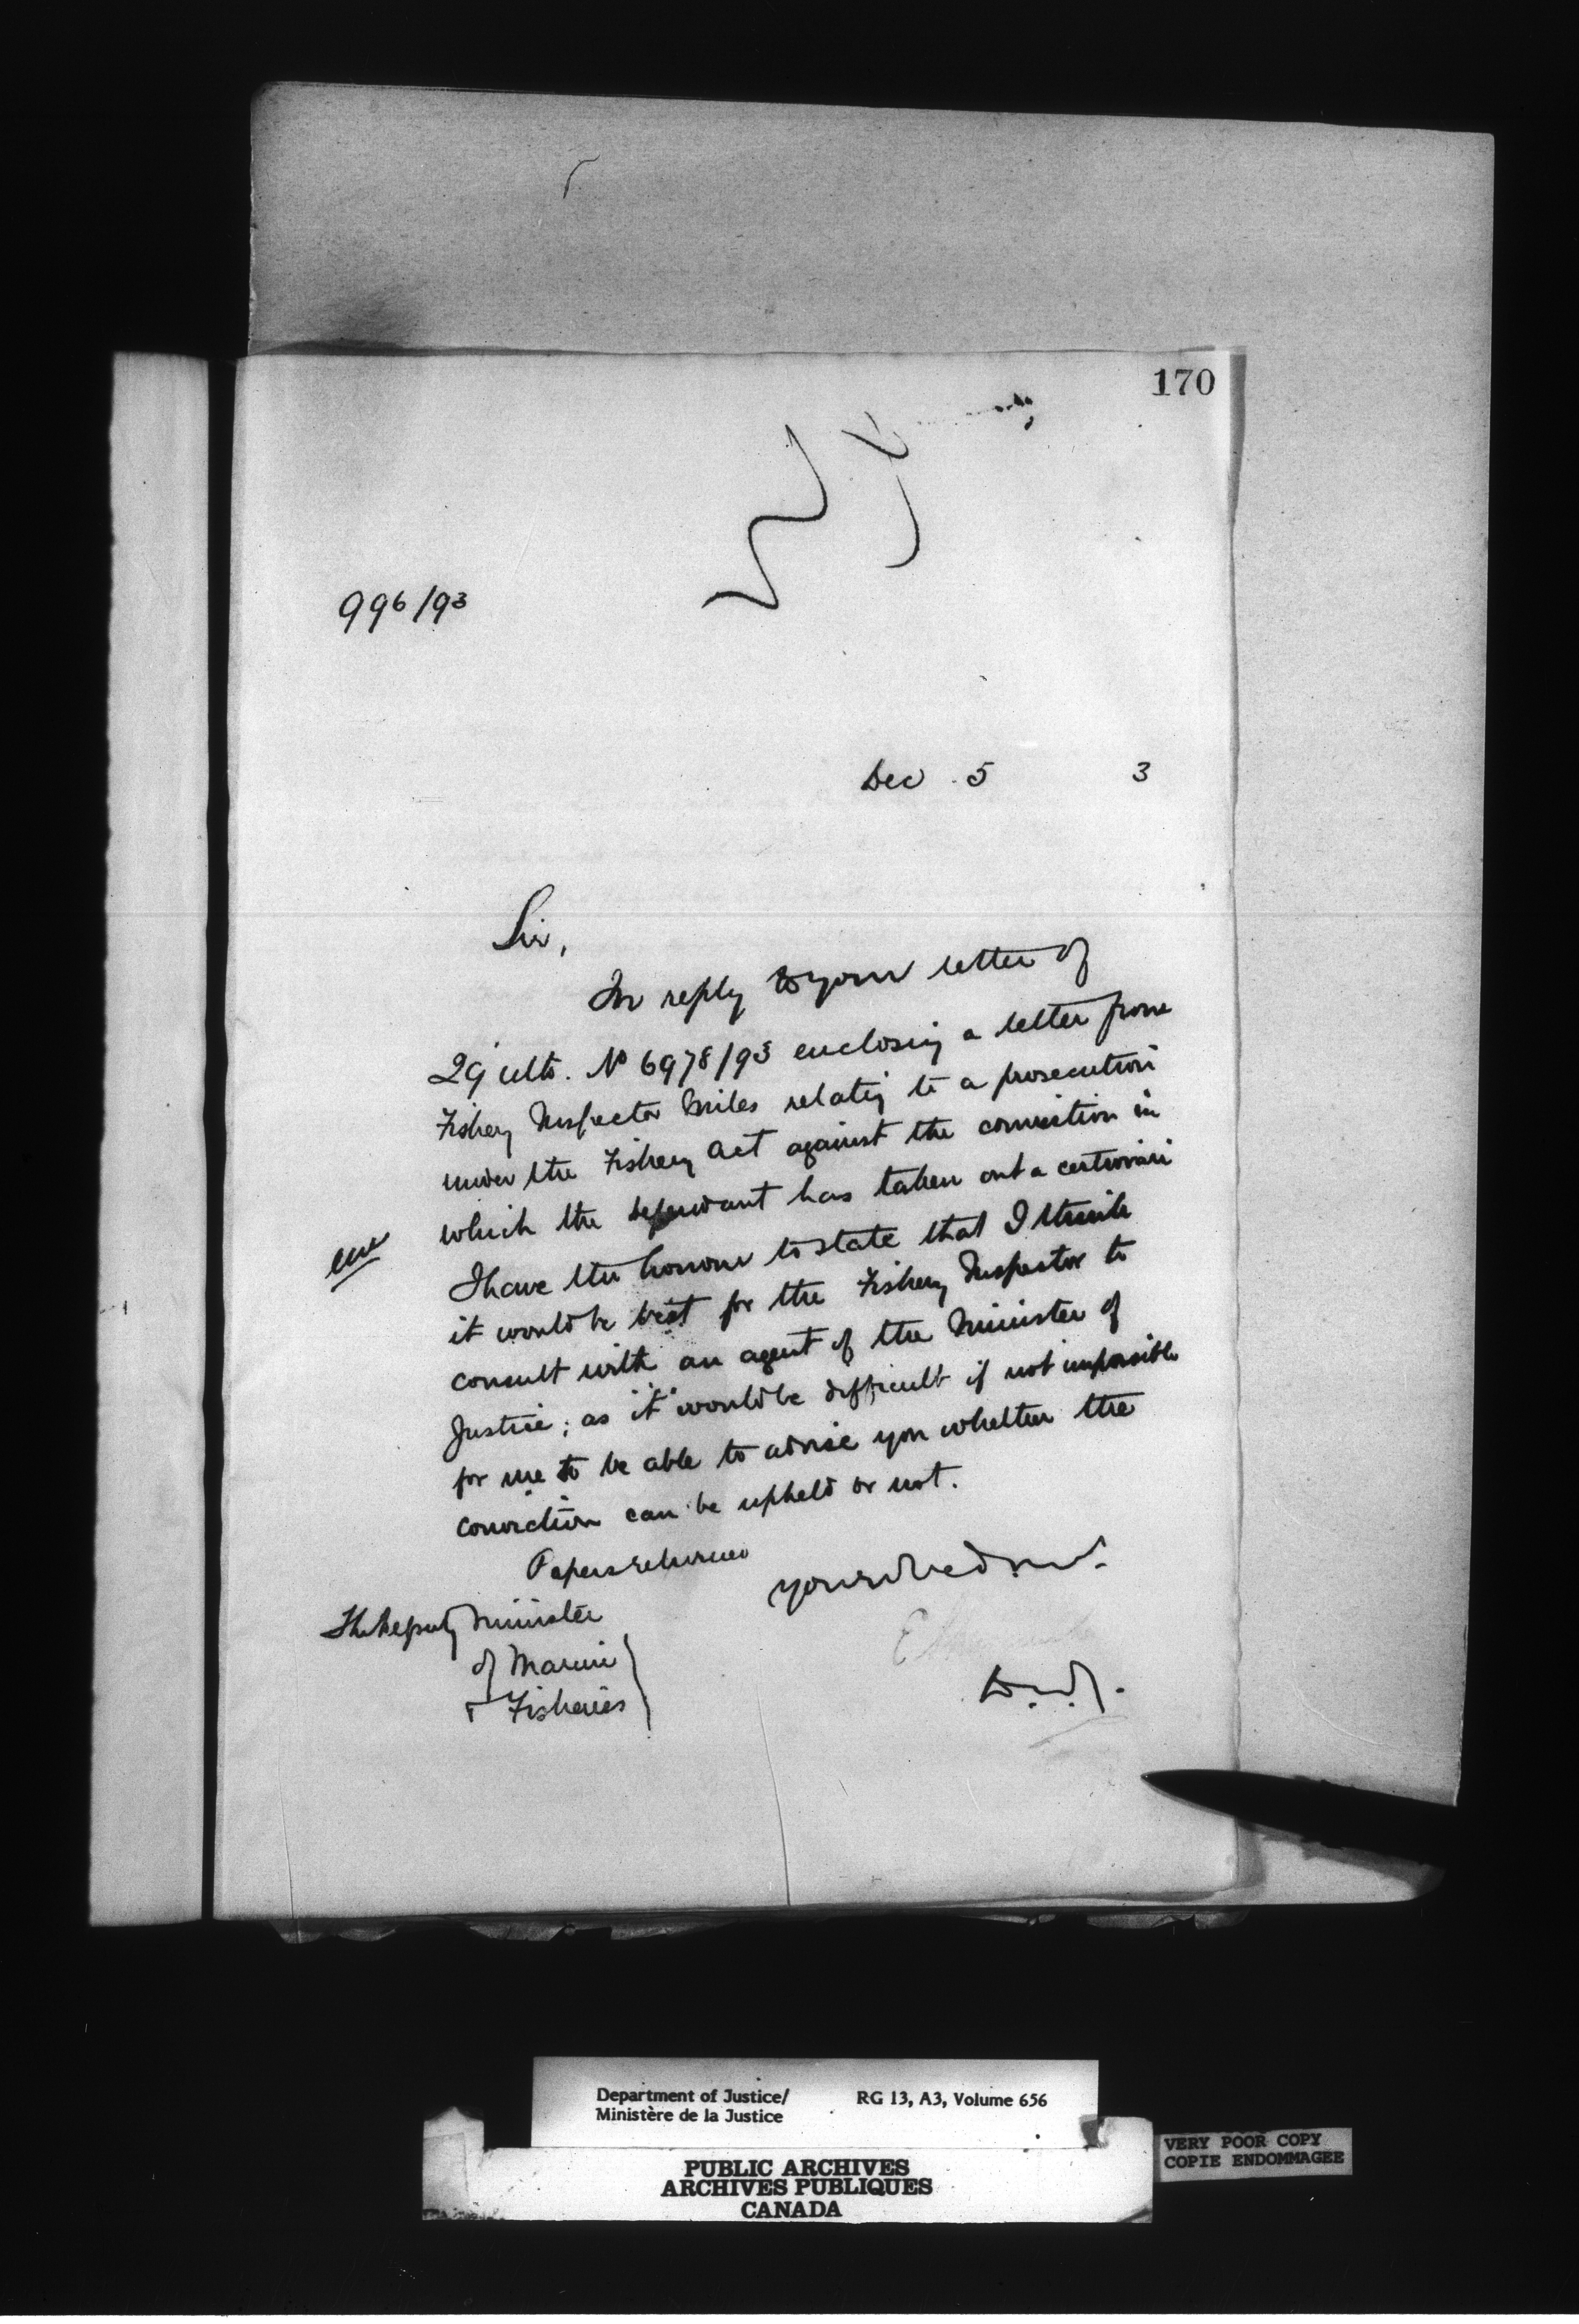 170
996/93
Dec 5 3
Sir,
In reply to your letter of
29 ulto. No 6978/93 enclosing a letter from
Fishery Inspector Miles relatig to a prosecution
under the Fishery Act against the conviction in
which the defendant has taken out a certiorari
I have the honour to state that I think
it would be best for the Fishery Inspector to
consult with an agent of the Minister of
Justice; as it would be difficult if not impossible
for me to be able to advise you whether the
conviction can be upheld or not.
Papers returned
The Deputy Minister
of Marine
& Fisheries
D.M.J.
Department of Justice/
Ministère de la Justice
RG 13, A3, Volume 656
PUBLIC ARCHIVES
ARCHIVES PUBLIQUES
CANADA
VERY POOR COPY
COPIE ENDOMMAGEE